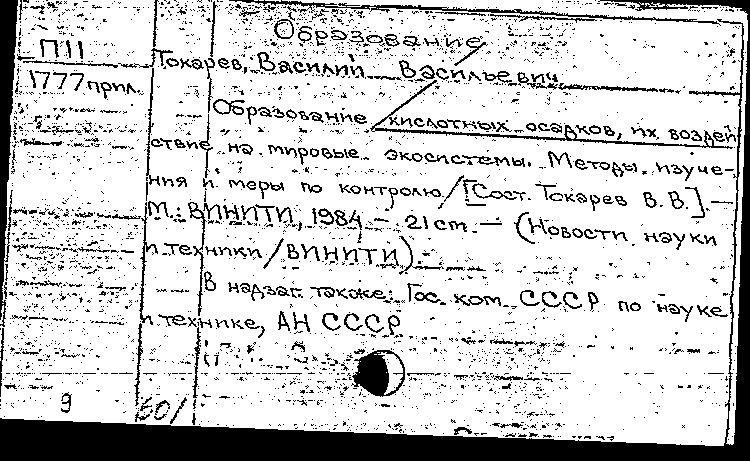 Образование
П11
Токарев, Василий Васильевич
1777 прил.
Образование кислотных осадков, их воздей
ствие на мировые экосистемы. Методы изуче-
ния и меры по контролю / [Сост. Токарев В. В.]. —
М.: ВИНИТИ, 1984 — 21 ст. — (Новости науки
и техники / ВИНИТИ). —
В надзаг. также: Гос. ком. СССР по науке
и технике, АН СССР
9
60/